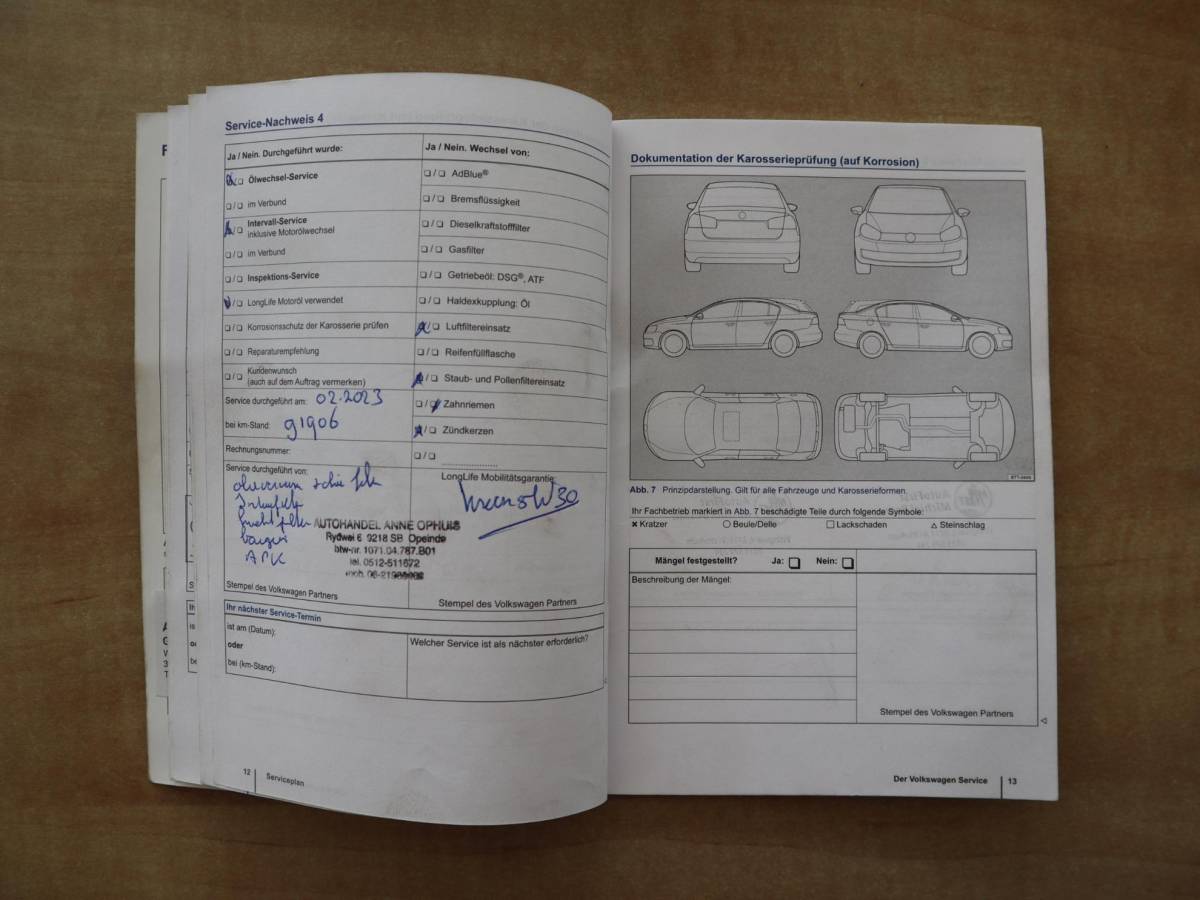 Service-Nachweis 4
Ja / Nein. Durchgeführt wurde:
Ja / Nein. Wechsel von:
❏/❏ Ölwechsel-Service
❏/❏ im Verbund
❏/❏ Intervall-Service
inklusive Motorölwechsel
❏/❏ im Verbund
❏/❏ Inspektions-Service
❏/❏ LongLife Motoröl verwendet
❏/❏ Korrosionsschutz der Karosserie prüfen
❏/❏ Reparaturempfehlung
❏/❏ Kundenwunsch
(auch auf dem Auftrag vermerken)
❏/❏ AdBlue®
❏/❏ Bremsflüssigkeit
❏/❏ Dieselkraftstofffilter
❏/❏ Gasfilter
❏/❏ Getriebeöl: DSG®, ATF
❏/❏ Haldexkupplung: Öl
❏/❏ Luftfiltereinsatz
❏/❏ Reifenfüllflasche
❏/❏ Staub- und Pollenfiltereinsatz
❏/❏ Zahnriemen
❏/❏ Zündkerzen
❏/❏
Service durchgeführt am: 02.2023
bei km-Stand: 91906
Rechnungsnummer:
Service durchgeführt von:
LongLife Mobilitätsgarantie:
APK
AUTOHANDEL ANNE OPHUIS
Rydwei 6 9218 SB Opeinde
btw-nr. 1071.04.787.B01
tel. 0512-511672
Stempel des Volkswagen Partners
Stempel des Volkswagen Partners
Ihr nächster Service-Termin
ist am (Datum):
oder
bei (km-Stand):
Welcher Service ist als nächster erforderlich?
12 Serviceplan
Dokumentation der Karosserieprüfung (auf Korrosion)
Abb. 7 Prinzipdarstellung. Gilt für alle Fahrzeuge und Karosserieformen.
Ihr Fachbetrieb markiert in Abb. 7 beschädigte Teile durch folgende Symbole:
✖ Kratzer ○ Beule/Delle □ Lackschaden △ Steinschlag
Mängel festgestellt? Ja: ❏ Nein: ❏
Beschreibung der Mängel:
Stempel des Volkswagen Partners
Der Volkswagen Service 13